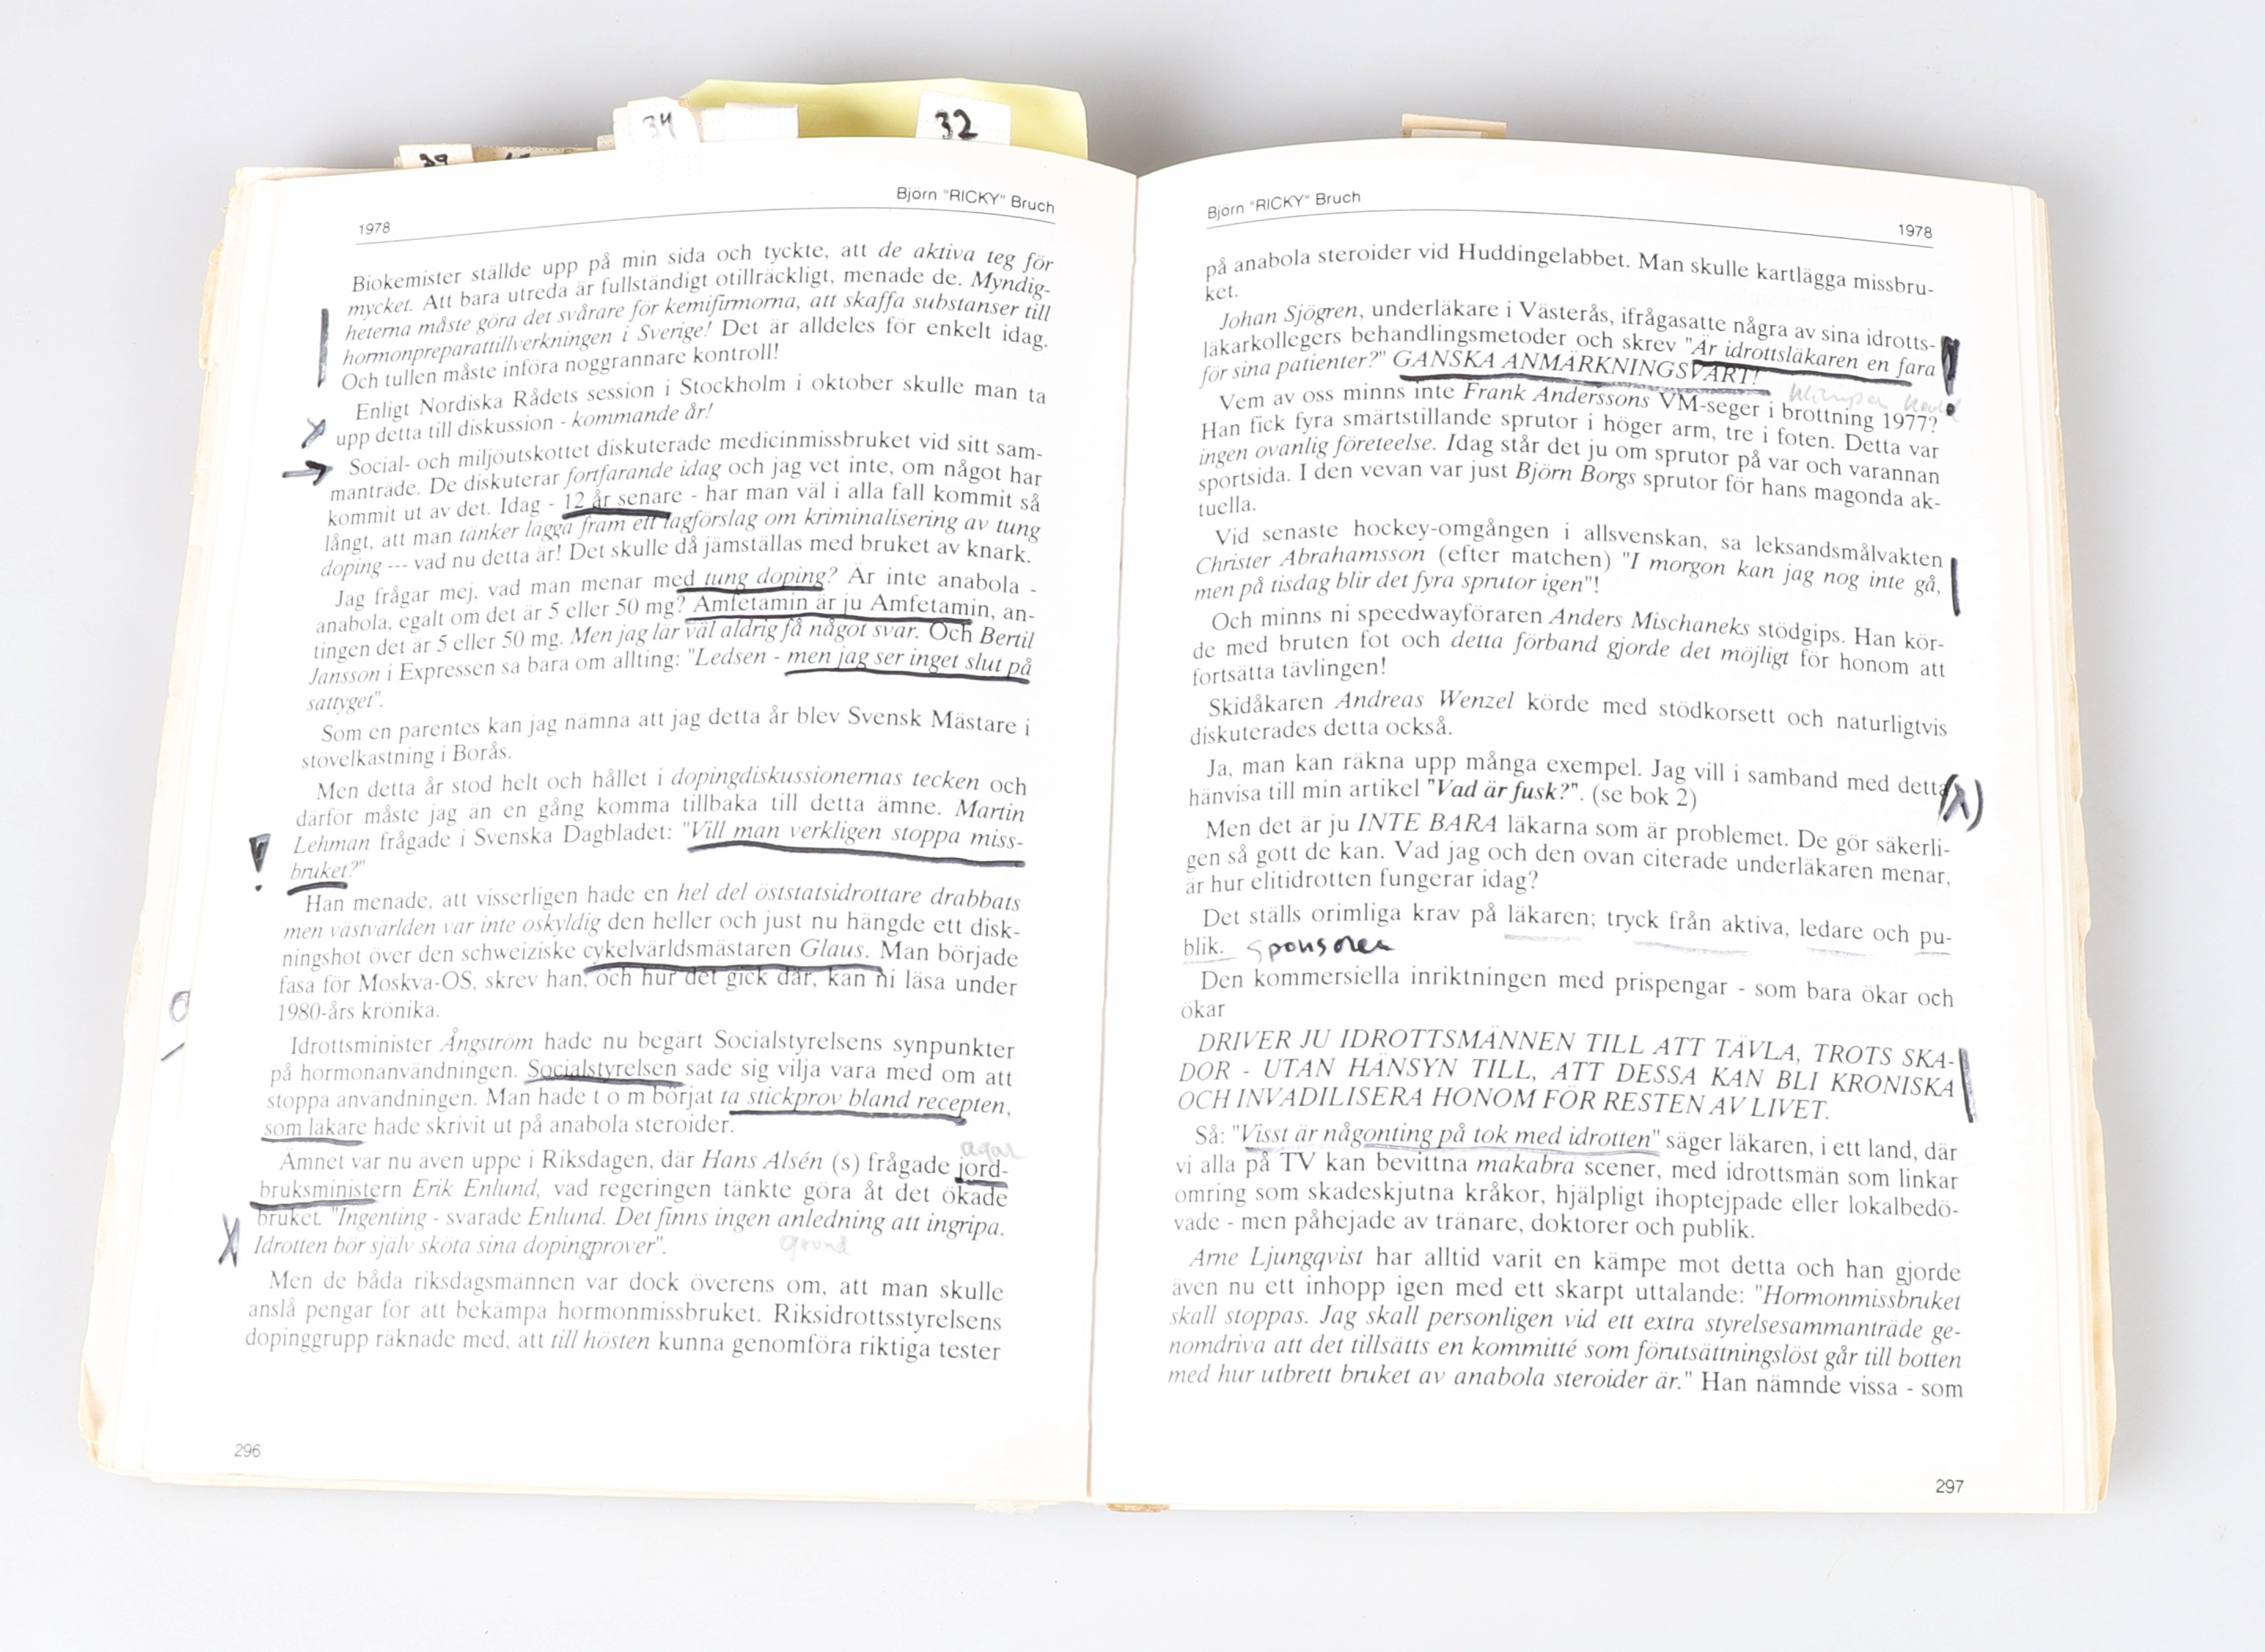 34
32
39
Björn "RICKY" Bruch
1978
Biokemister ställde upp på min sida och tyckte, att de aktiva teg för
mycket. Att bara utreda är fullständigt otillräckligt, menade de. Myndig-
heterna måste göra det svårare för kemifirmorna, att skaffa substanser till
hormonpreparattillverkningen i Sverige! Det är alldeles för enkelt idag.
Och tullen måste införa noggrannare kontroll!
Enligt Nordiska Rådets session i Stockholm i oktober skulle man ta
upp detta till diskussion - kommande år!
Social- och miljöutskottet diskuterade medicinmissbruket vid sitt sam-
manträde. De diskuterar fortfarande idag och jag vet inte, om något har
kommit ut av det. Idag - 12 år senare - har man väl i alla fall kommit så
långt, att man tänker lägga fram ett lagförslag om kriminalisering av tung
doping --- vad nu detta är! Det skulle då jämställas med bruket av knark.
Jag frågar mej, vad man menar med tung doping? Är inte anabola -
anabola, egalt om det är 5 eller 50 mg? Amfetamin är ju Amfetamin, an-
tingen det är 5 eller 50 mg. Men jag lär väl aldrig få något svar. Och Bertil
Jansson i Expressen sa bara om allting: "Ledsen - men jag ser inget slut på
sattyget".
Som en parentes kan jag nämna att jag detta år blev Svensk Mästare i
stövelkastning i Borås.
Men detta år stod helt och hållet i dopingdiskussionernas tecken och
därför måste jag än en gång komma tillbaka till detta ämne. Martin
Lehman frågade i Svenska Dagbladet: "Vill man verkligen stoppa miss-
bruket?"
Han menade, att visserligen hade en hel del öststatsidrottare drabbats
men västvärlden var inte oskyldig den heller och just nu hängde ett disk-
ningshot över den schweiziske cykelvärldsmästaren Glaus. Man började
fasa för Moskva-OS, skrev han, och hur det gick där, kan ni läsa under
1980-års krönika.
Idrottsminister Ångström hade nu begärt Socialstyrelsens synpunkter
på hormonanvändningen. Socialstyrelsen sade sig vilja vara med om att
stoppa användningen. Man hade t o m börjat ta stickprov bland recepten,
som läkare hade skrivit ut på anabola steroider.
Ämnet var nu även uppe i Riksdagen, där Hans Alsén (s) frågade jord-
bruksministern Erik Enlund, vad regeringen tänkte göra åt det ökade
bruket. "Ingenting - svarade Enlund. Det finns ingen anledning att ingripa.
Idrotten bör själv sköta sina dopingprover".
grund
Men de båda riksdagsmännen var dock överens om, att man skulle
anslå pengar för att bekämpa hormonmissbruket. Riksidrottsstyrelsens
dopinggrupp räknade med, att till hösten kunna genomföra riktiga tester
296
Björn "RICKY" Bruch
1978
på anabola steroider vid Huddingelabbet. Man skulle kartlägga missbru-
ket.
Johan Sjögren, underläkare i Västerås, ifrågasatte några av sina idrotts-
läkarkollegers behandlingsmetoder och skrev "Är idrottsläkaren en fara
för sina patienter?" GANSKA ANMÄRKNINGSVÄRT!
Vem av oss minns inte Frank Anderssons VM-seger i brottning 1977?
Han fick fyra smärtstillande sprutor i höger arm, tre i foten. Detta var
ingen ovanlig företeelse. Idag står det ju om sprutor på var och varannan
sportsida. I den vevan var just Björn Borgs sprutor för hans magonda ak-
tuella.
Vid senaste hockey-omgången i allsvenskan, sa leksandsmålvakten
Christer Abrahamsson (efter matchen) "I morgon kan jag nog inte gå,
men på tisdag blir det fyra sprutor igen"!
Och minns ni speedwayföraren Anders Mischaneks stödgips. Han kör-
de med bruten fot och detta förband gjorde det möjligt för honom att
fortsätta tävlingen!
Skidåkaren Andreas Wenzel körde med stödkorsett och naturligtvis
diskuterades detta också.
Ja, man kan räkna upp många exempel. Jag vill i samband med detta
hänvisa till min artikel "Vad är fusk?". (se bok 2)
Men det är ju INTE BARA läkarna som är problemet. De gör säkerli-
gen så gott de kan. Vad jag och den ovan citerade underläkaren menar,
är hur elitidrotten fungerar idag?
Det ställs orimliga krav på läkaren; tryck från aktiva, ledare och pu-
blik. sponsorer
Den kommersiella inriktningen med prispengar - som bara ökar och
ökar
DRIVER JU IDROTTSMÄNNEN TILL ATT TÄVLA, TROTS SKA-
DOR - UTAN HÄNSYN TILL, ATT DESSA KAN BLI KRONISKA
OCH INVADILISERA HONOM FÖR RESTEN AV LIVET.
Så: "Visst är någonting på tok med idrotten" säger läkaren, i ett land, där
vi alla på TV kan bevittna makabra scener, med idrottsmän som linkar
omring som skadeskjutna kråkor, hjälpligt ihoptejpade eller lokalbedö-
vade - men påhejade av tränare, doktorer och publik.
Arne Ljungqvist har alltid varit en kämpe mot detta och han gjorde
även nu ett inhopp igen med ett skarpt uttalande: "Hormonmissbruket
skall stoppas. Jag skall personligen vid ett extra styrelsesammanträde ge-
nomdriva att det tillsätts en kommitté som förutsättningslöst går till botten
med hur utbrett bruket av anabola steroider är." Han nämnde vissa - som
297